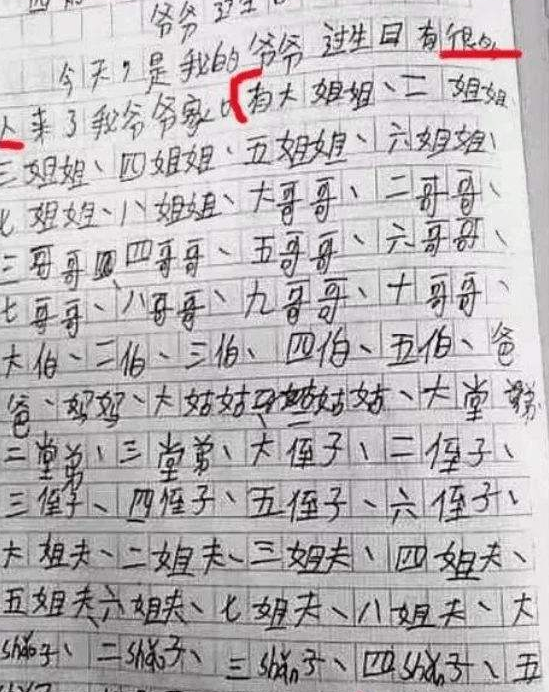 爷爷
今天,是我的爷爷过生日有很多
人来了我爷爷家。有大姐姐、二姐姐
三姐姐、四姐姐、五姐姐、六姐姐、
七姐姐、八姐姐、大哥哥、二哥哥、
三哥哥、四哥哥、五哥哥、六哥哥、
七哥哥、八哥哥、九哥哥、十哥哥、
大伯、二伯、三伯、四伯、五伯、爸
爸、妈妈、大姑姑、二姑姑、大堂弟
二堂弟、三堂弟、大侄子、二侄子、
三侄子、四侄子、五侄子、六侄子、
大姐夫、二姐夫、三姐夫、四姐夫、
五姐夫、六姐夫、七姐夫、八姐夫、大
sháo子、二sháo子、三sháo子、四sháo子、五